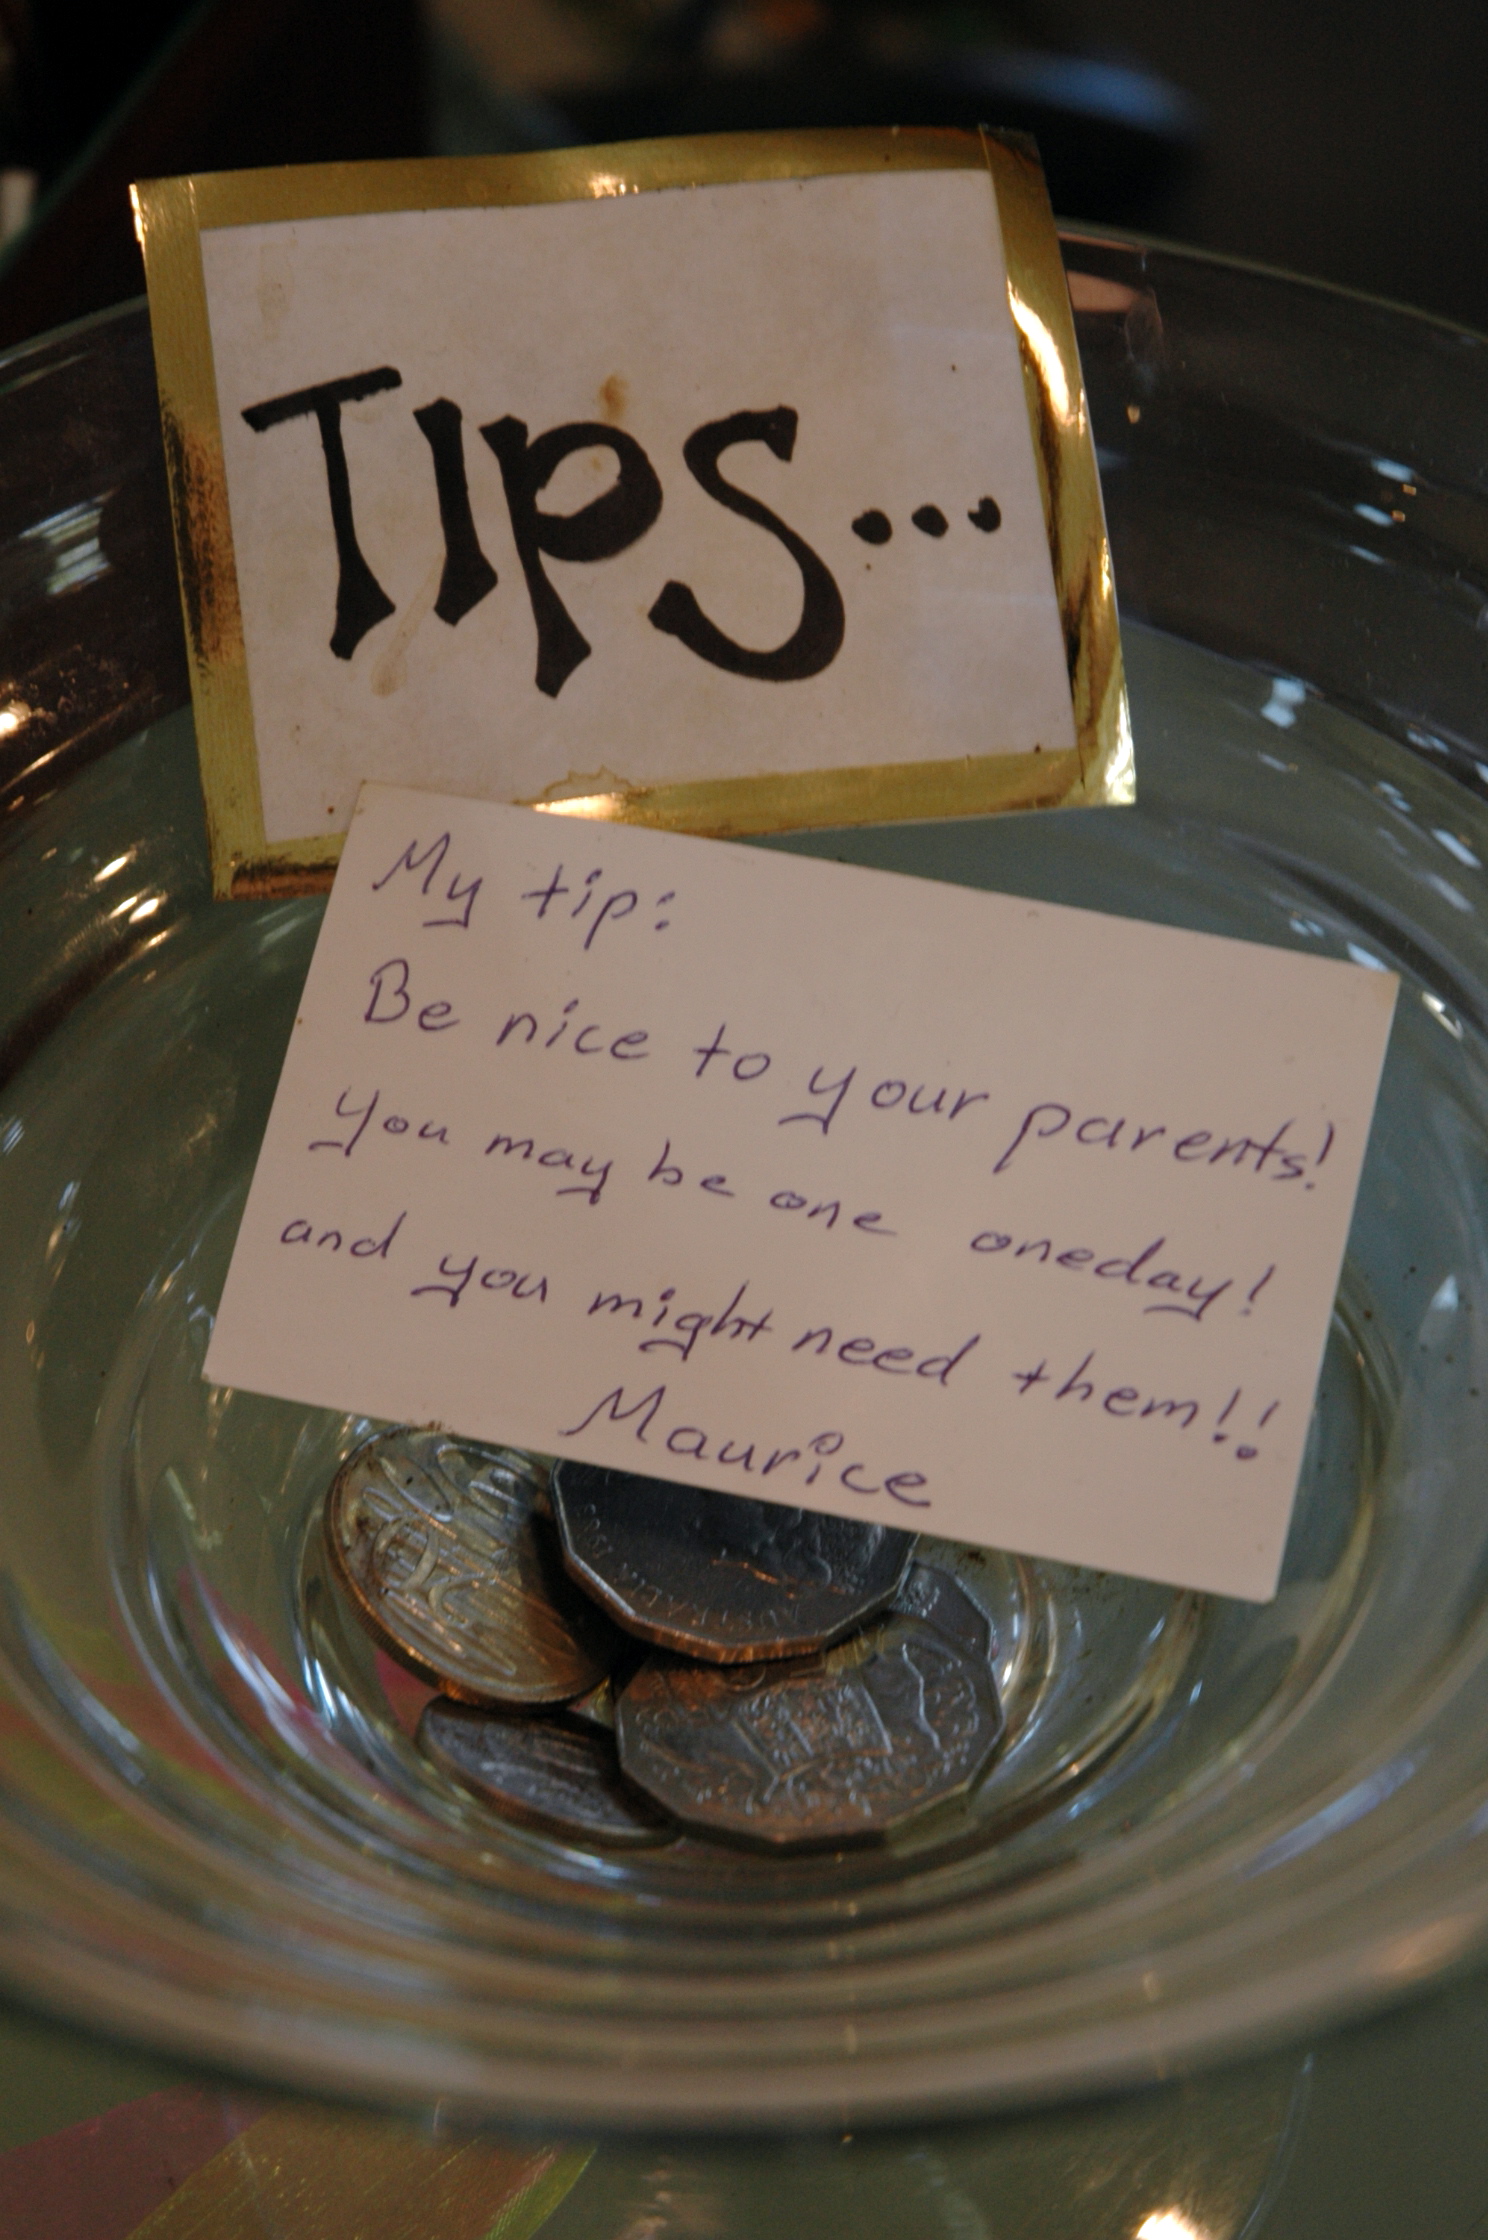 TIPS...
My tip:
Be nice to your parents!
You may be one oneday!
and you might need them!!
Maurice
AUSTRALIA